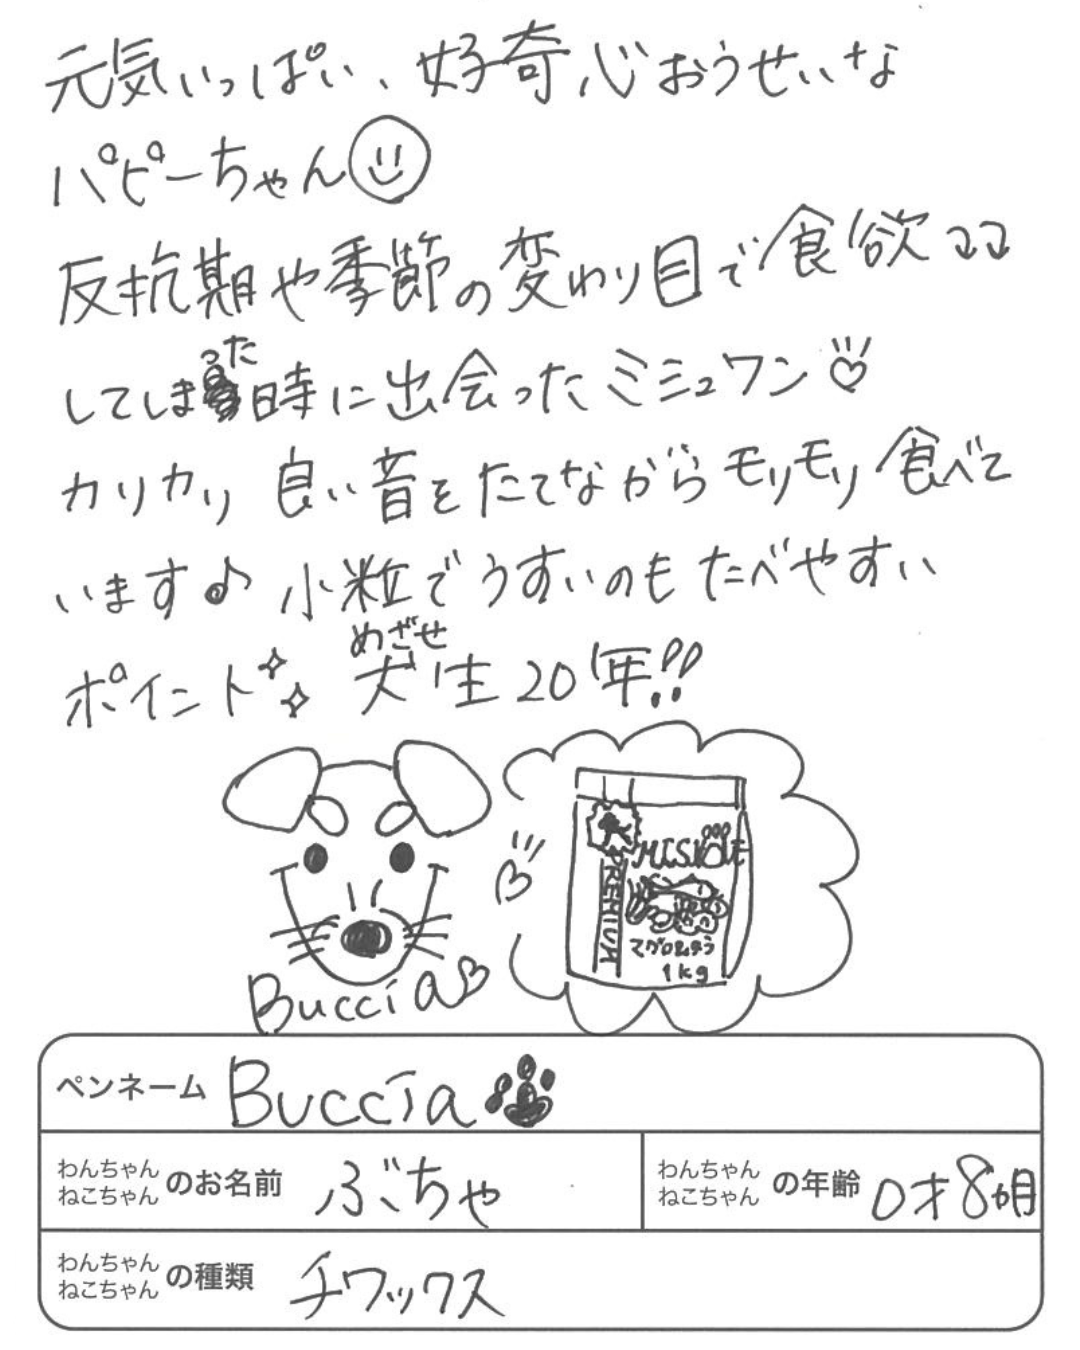 元気いっぱい、好奇心おうせいな
パピーちゃん
反抗期や季節の変わり目で食欲↴↴
してしまった時に出会ったミシュワン♡
カリカリ 良い音をたてながらモリモリ食べて
います♪ 小粒でうすいのもたべやすい
ポイント✧✧ めざせ犬生20年!!
Buccia♡
PREMIUM
マグロ&タラ
1kg
ペンネーム Buccia
わんちゃん
ねこちゃん のお名前 ぶちゃ
わんちゃん
ねこちゃん の年齢 0才8ヵ月
わんちゃん
ねこちゃん の種類 チワックス